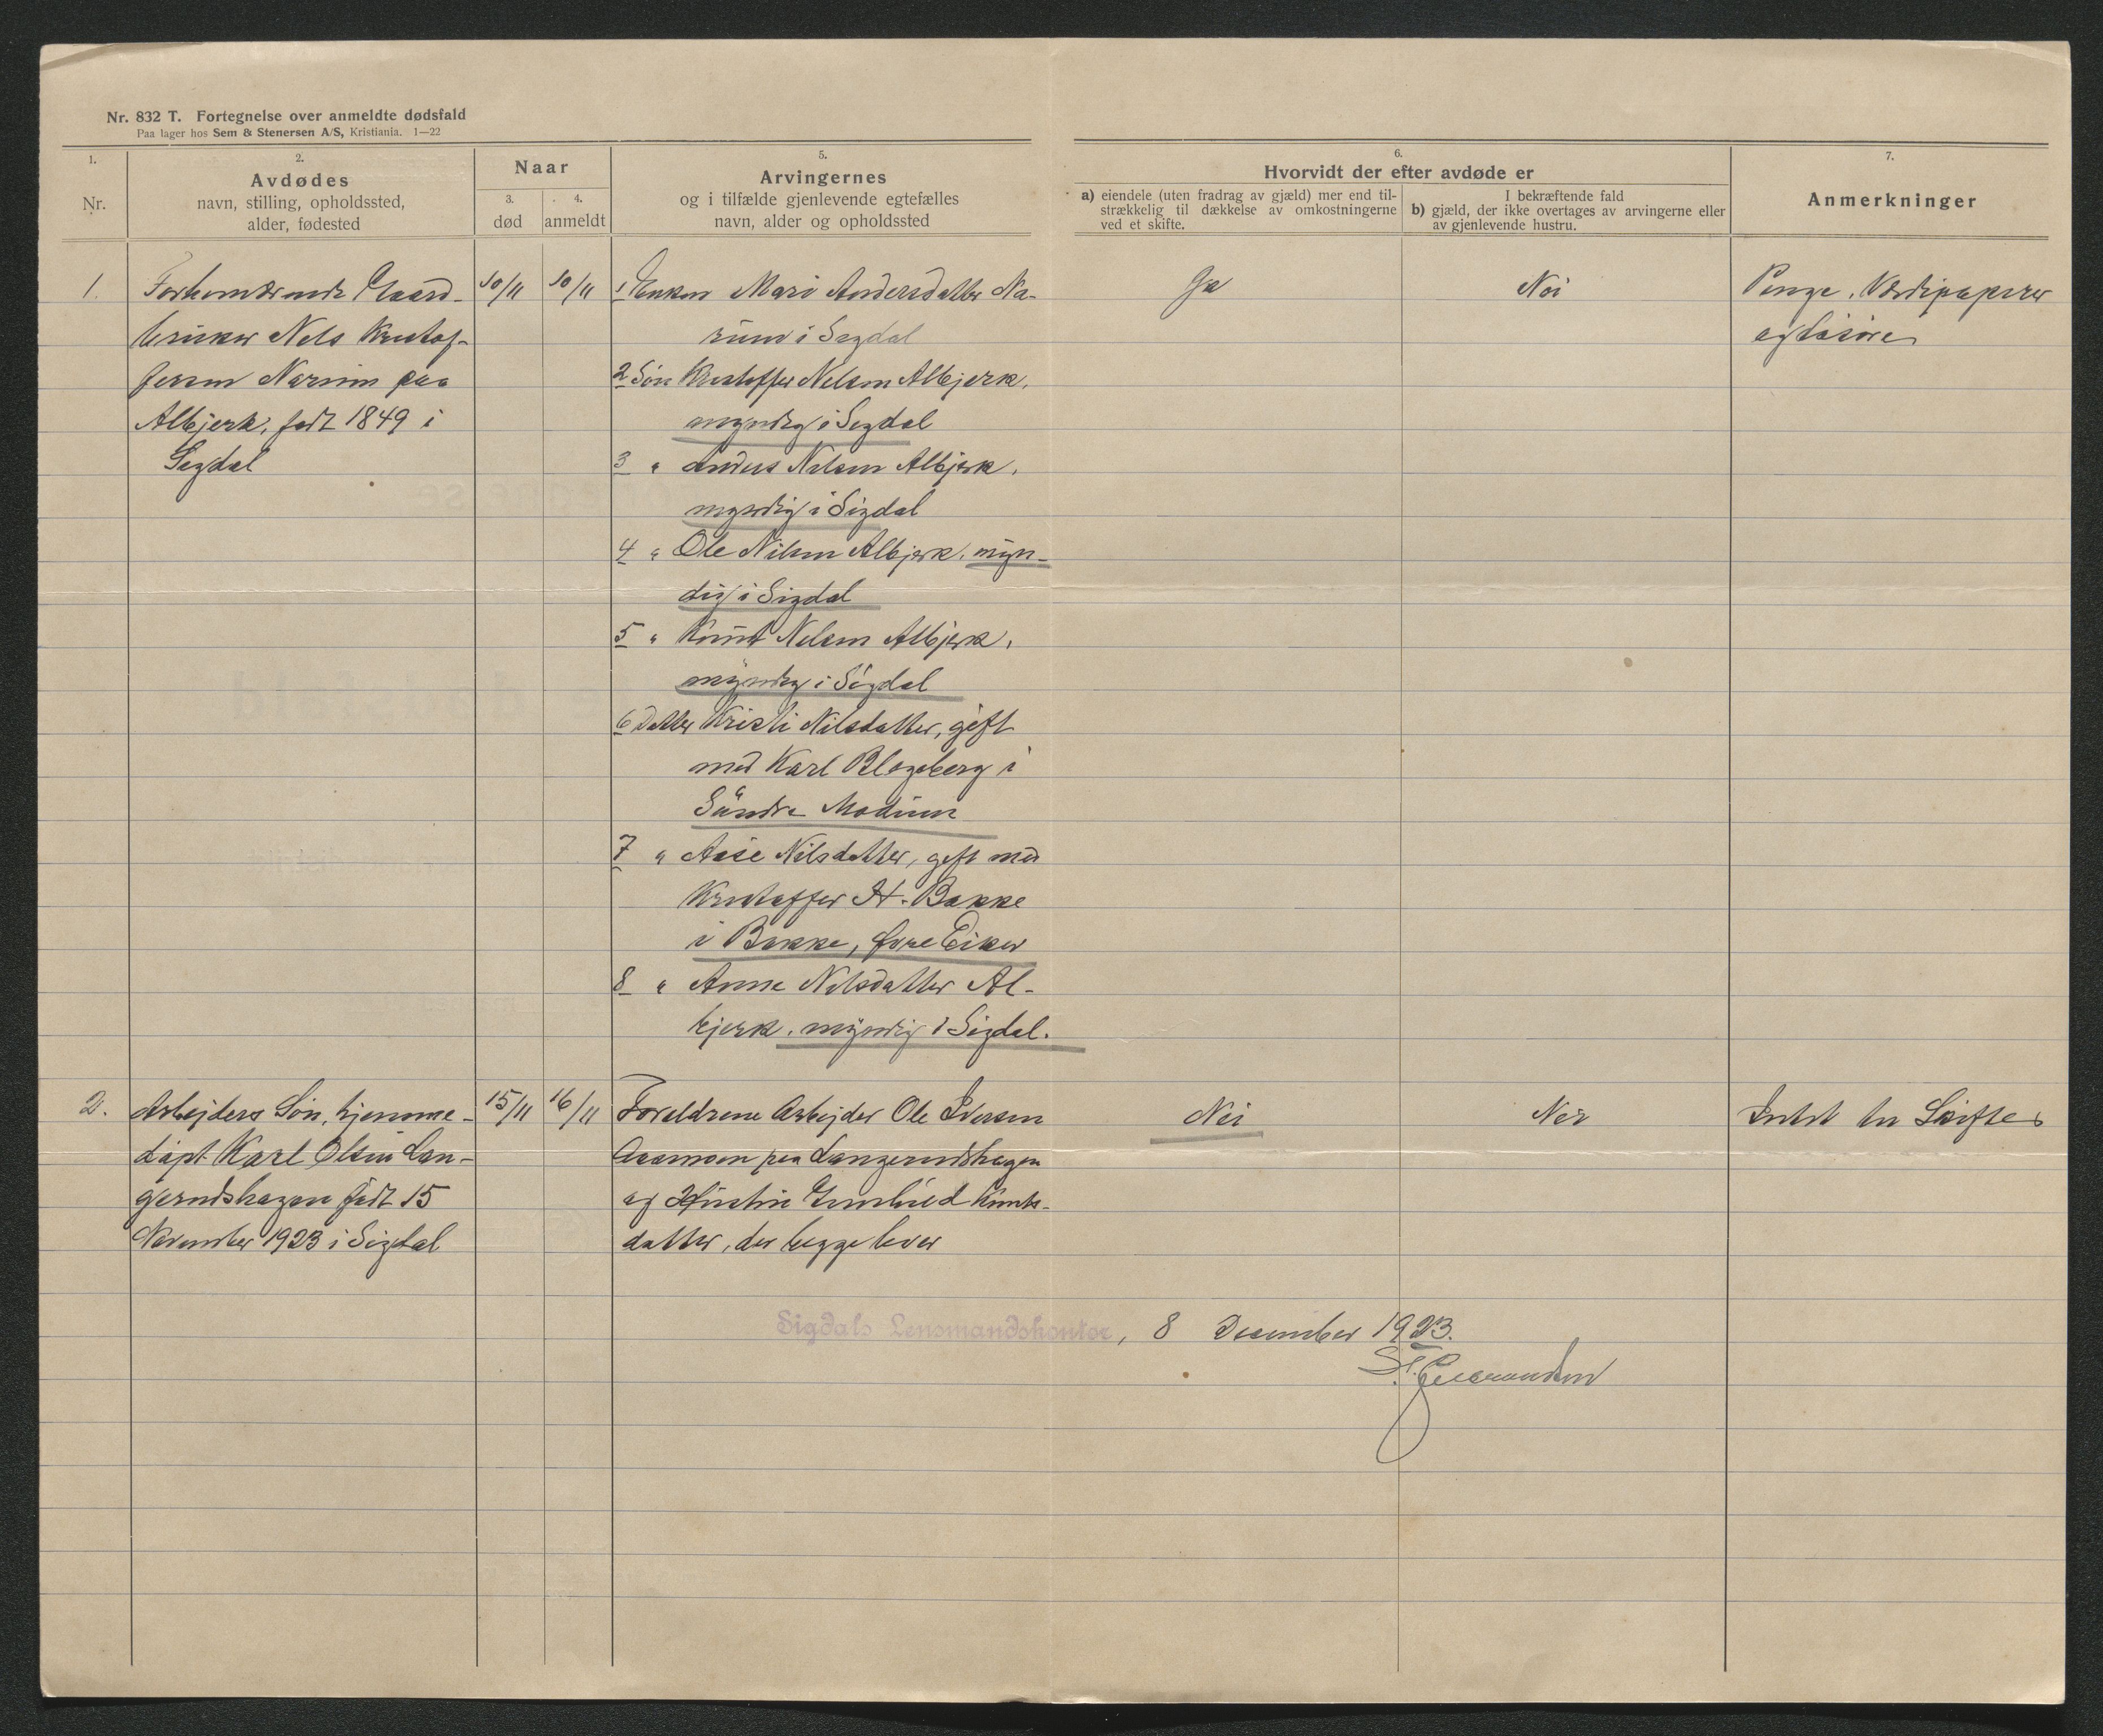 Nr. 832 T. Fortegnelse over anmeldte dødsfald
Paa lager hos Sem & Stenersen A/S, Kristiania. 1—22
1.
Nr.
2.
Avdødes
navn, stilling, opholdssted,
alder, fødested
Naar
3.
død
4.
anmeldt
5.
Arvingernes
og i tilfælde gjenlevende egtefælles
navn, alder og opholdssted
6.
Hvorvidt der efter avdøde er
a) eiendele (uten fradrag av gjæld) mer end til-
strækkelig til dækkelse av omkostningerne
ved et skifte.
I bekræftende fald
b) gjæld, der ikke overtages av arvingerne eller
av gjenlevende hustru.
7.
Anmerkninger
1.
Forhenværende Gaard-
bruker Nels Kristof-
fersen Narum paa
Albjerk, født 1849 i
Sigdal
10/11
10/11
1 Enken Mari Andersdatter Na-
rum i Sigdal
2 Søn Kristoffer Nelsen Albjerk,
myndig i Sigdal
3 " Anders Nilsen Albjerk,
myndig i Sigdal
4 " Ole Nilsen Albjerk, myn-
dig i Sigdal
5 " Knut Nelsen Albjerk,
myndig i Sigdal
6 Datter Kristi Nilsdatter, gift
med Karl Blegeberg i
Søndre Modum
7 " Aase Nilsdatter, gift med
Kristoffer H. Bakke
i Bakke, Øvre Eiker
8 " Anne Nilsdatter Al-
bjerk, myndig i Sigdal.
Ja
Nei
Penge, Værdipapirer
og Løsøre
2.
Arbejders Søn, hjemme-
døpt Karl Olsen Lan-
gerudshagen født 15
November 1923 i Sigdal
15/11
16/11
Foreldrene Arbejder Ole Iversen
Aasmoen paa Langerudshagen
og Hustru Gunhild Knuts-
datter, der begge lever
Nei
Nei
Intet til Skifte
Sigdals Lensmandskontor, 8 December 1923.